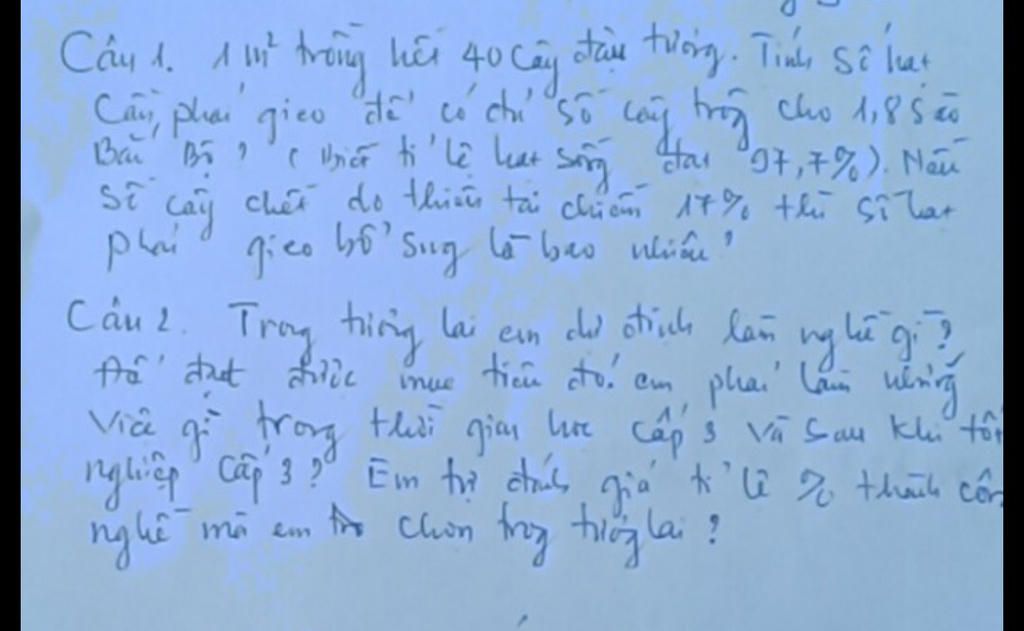 Câu 1. 1 m² trồng hết 40 cây đậu tương. Tính số hạt
cần phải gieo để có đủ số cây trồng cho 1,8 sào
Bắc Bộ? (Biết tỉ lệ hạt sống đạt 97,7%). Nếu
số cây chết do thiên tai chiếm 17% thì số hạt
phải gieo bổ sung là bao nhiêu?
Câu 2. Trong tương lai em dự định làm nghề gì?
Để đạt được mục tiêu đó em phải làm những
việc gì trong thời gian học cấp 3 và sau khi tốt
nghiệp cấp 3? Em tự đánh giá tỉ lệ % thành côn
nghề mà em chọn trong tương lai?